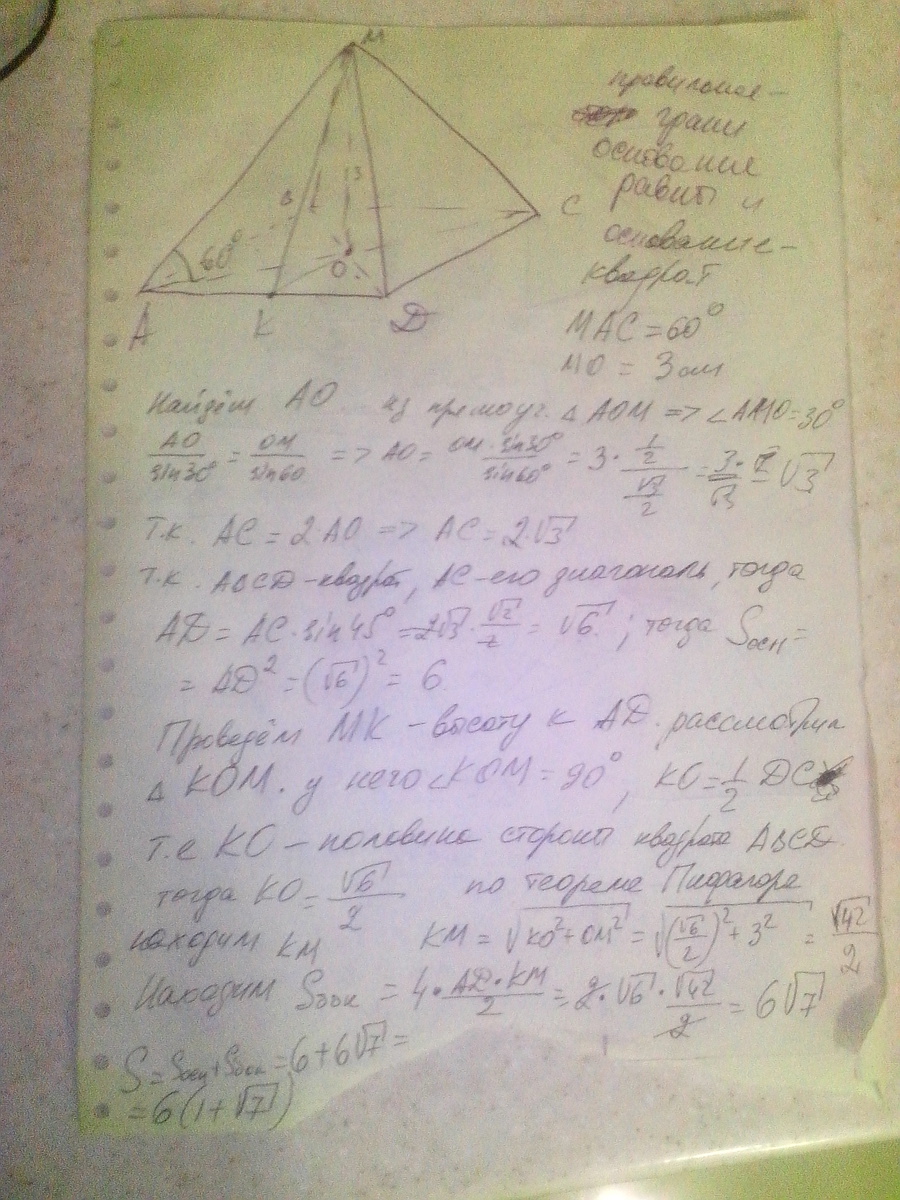 M
правильная –
грани
основание
равны и
основание –
квадрат
3
B
C
60°
O
A
K
D
MAC = 60°
MO = 3 см
Найдём AO из прямоуг. △ AOM => ∠AMO = 30°
AO/sin30° = OM/sin60 => AO = OM · sin30°/sin60° = 3 · (1/2)/(√3/2) = 3/√3 = √3
Т.к. AC = 2·AO => AC = 2·√3
т.к. ABCD – квадрат, AC – его диагональ, тогда
AD = AC · sin 45° = 2√3 · √2/2 = √6 ; тогда Sосн =
= AD² = (√6)² = 6
Проведём MK – высоту к AD. рассмотрим
△ KOM. у него ∠KOM = 90°, KO = 1/2 DC
т.е KO – половина стороны квадрата ABCD.
тогда KO = √6/2 по теореме Пифагора
находим KM KM = √(KO² + OM²) = √((√6/2)² + 3²) = √42/2
Находим Sбок = 4 · AD · KM/2 = 2 · √6 · √42/2 = 6√7
S = Sосн + Sбок = 6 + 6√7 =
= 6(1 + √7)